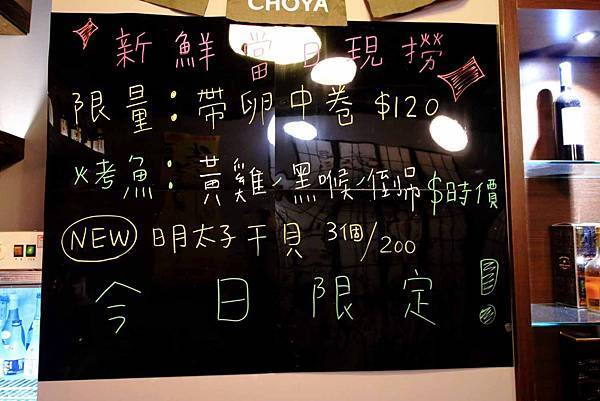 CHOYA
新鮮當日現撈
限量：帶卵中卷 $120
火考魚：黃雞、黑喉、侄吊 $時價
NEW 明太子干貝 3個/200
今日限定!